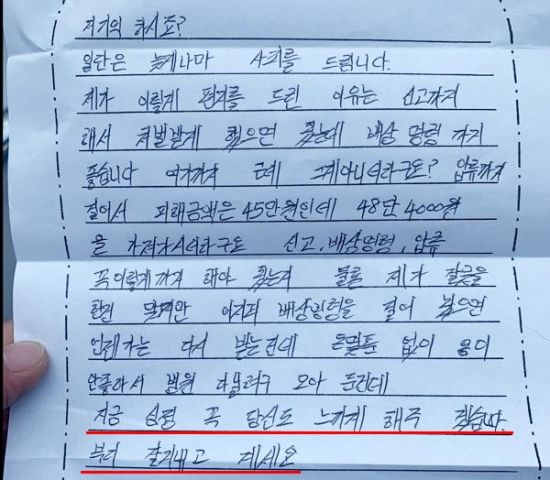 저기억 하시죠?
일단은 늦게나마 사죄를 드립니다.
제가 이렇게 편지를 드린 이유는 신고까지
해서 처벌받게 했으면 됐는데 배상 명령 까지
좋습니다 여기까지 근데 그게아니더라구요? 압류까지
걸어서 피해금액은 45만원인데 48만 4000원
을 가져가시더라구요 신고, 배상명령, 압류
꼭이렇게까지 해야 했는지 물론 제가 잘못을
한건 맞지만 어차피 배상명령을 걸어 놨으면
언젠가는 다시 받는건데 돈몇푼 없이 몸이
안좋아서 병원 다닐려구 모아 둔건데
지금 심정 꼭 당신도 느끼게 해주 겠습니다.
부디 잘지내고 계세요